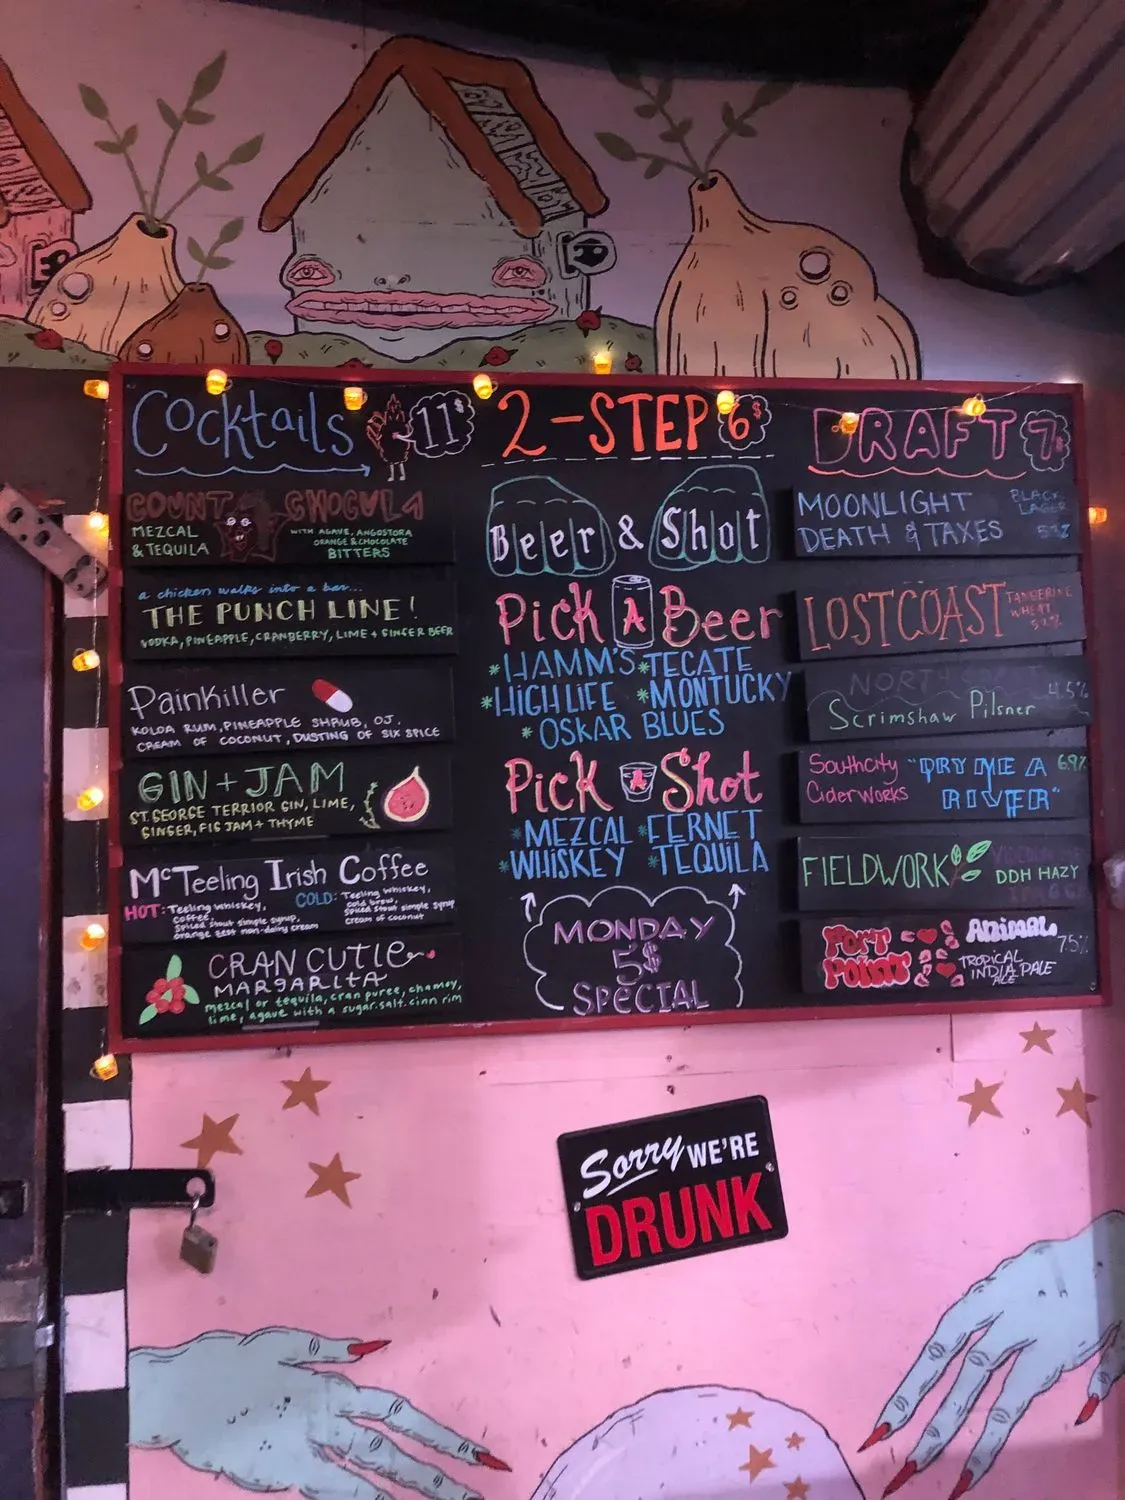 Cocktails 11$
COUNT CHOCULA
MEZCAL
& TEQUILA
WITH AGAVE, ANGOSTORA
ORANGE & CHOCOLATE
BITTERS
a chicken walks into a bar...
THE PUNCH LINE!
VODKA, PINEAPPLE, CRANBERRY, LIME + GINGER BEER
PAINKILLER
KOLOA RUM, PINEAPPLE SHRUB, OJ,
CREAM OF COCONUT, DUSTING OF SIX SPICE
GIN + JAM
ST. GEORGE TERRIOR GIN, LIME,
GINGER, FIG JAM + THYME
McTeeling Irish Coffee
HOT: Teeling whiskey,
coffee,
spiced stout simple syrup,
orange zest non-dairy cream
COLD: Teeling whiskey,
cold brew,
spiced stout simple syrup
cream of coconut
CRAN CUTIE
MARGARITA
mezcal or tequila, cran puree, chamoy,
lime, agave with a sugar.salt.cinn rim
2-STEP 6$
Beer & Shot
Pick A Beer
*HAMM'S *TECATE
*HIGH LIFE *MONTUCKY
*OSKAR BLUES
Pick A Shot
*MEZCAL *FERNET
*WHISKEY *TEQUILA
MONDAY
5$
SPECIAL
DRAFT 7$
MOONLIGHT
DEATH & TAXES
BLACK
LAGER
LOSTCOAST
TANGERINE
WHEAT
Scrimshaw Pilsner
4.5%
SOUTHCITY
CIDERWORKS
"DRY ME A
RIVER"
6.9%
FIELDWORK
DDH HAZY
FORT
POINT
ANIMAL
TROPICAL
INDIA PALE
ALE
7.5%
Sorry WE'RE
DRUNK